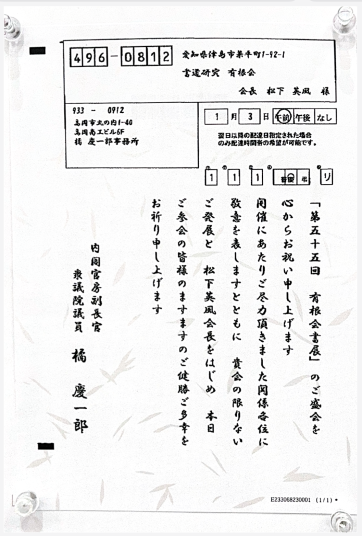 496-0812
愛知県津島市藁平町1-92-1
書道研究 有根会
会長 松下 英風 様
933 - 0912
高岡市丸の内1-40
高岡商工ビル6F
橘 慶一郎事務所
1月3日 午前 午後 なし
翌日以降の配達日指定された場合
のみ配達時間帯の希望が可能です。
1 1 1 リ
「第五十五回 有根会書展」のご盛会を
心からお祝い申し上げます
開催にあたりご尽力頂きました関係各位に
敬意を表しますとともに 貴会の限りない
ご発展と 松下英風会長をはじめ 本日
ご参会の皆様のますますのご健勝ご多幸を
お祈り申し上げます
内閣官房副長官
衆議院議員 橘 慶一郎
E233068230001 (1/1) *